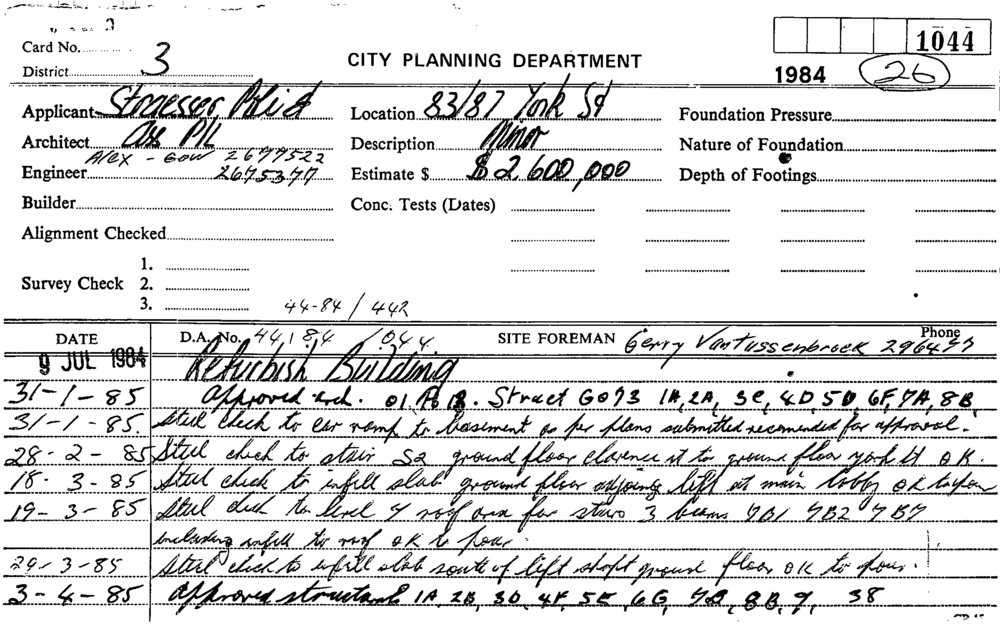 Card No. 3
District
CITY PLANNING DEPARTMENT
1044
1984 26
Applicant Straesser Location 83/87 York St Foundation Pressure
Architect P/L Description Minor Nature of Foundation
Alex - Gow 2677522
Engineer 2675377 Estimate $ $2,600,000 Depth of Footings
Builder Conc. Tests (Dates)
Alignment Checked
1.
Survey Check 2.
3. 44-84 / 442
DATE D.A. No. 44,184 /044 SITE FOREMAN Gerry VanTussenbroek Phone 296477
9 JUL 1984 Refurbish Building
31-1-85 Approved arch. 01 to 12. Struct G073 1A, 2A, 3C, 4D, 5D, 6F, 7A, 8B,
31-1-85. Steel check to car ramp to basement as per plans submitted recomended for approval.
28-2-85 Steel check to stair S2 ground floor st to ground floor york st OK.
18-3-85 Steel check to infill slab ground floor adjoining lift at main lobby OK to pour
19-3-85 Steel check to level 7 roof area for stairs 3 beams 7B1 7B2 7B7
including infill to roof OK to pour.
29-3-85 Steel check to infill slab south of lift shaft ground floor OK to pour.
3-4-85 Approved structural 1A, 2B, 3D, 4F, 5E, 6G, 8B, 9, 38